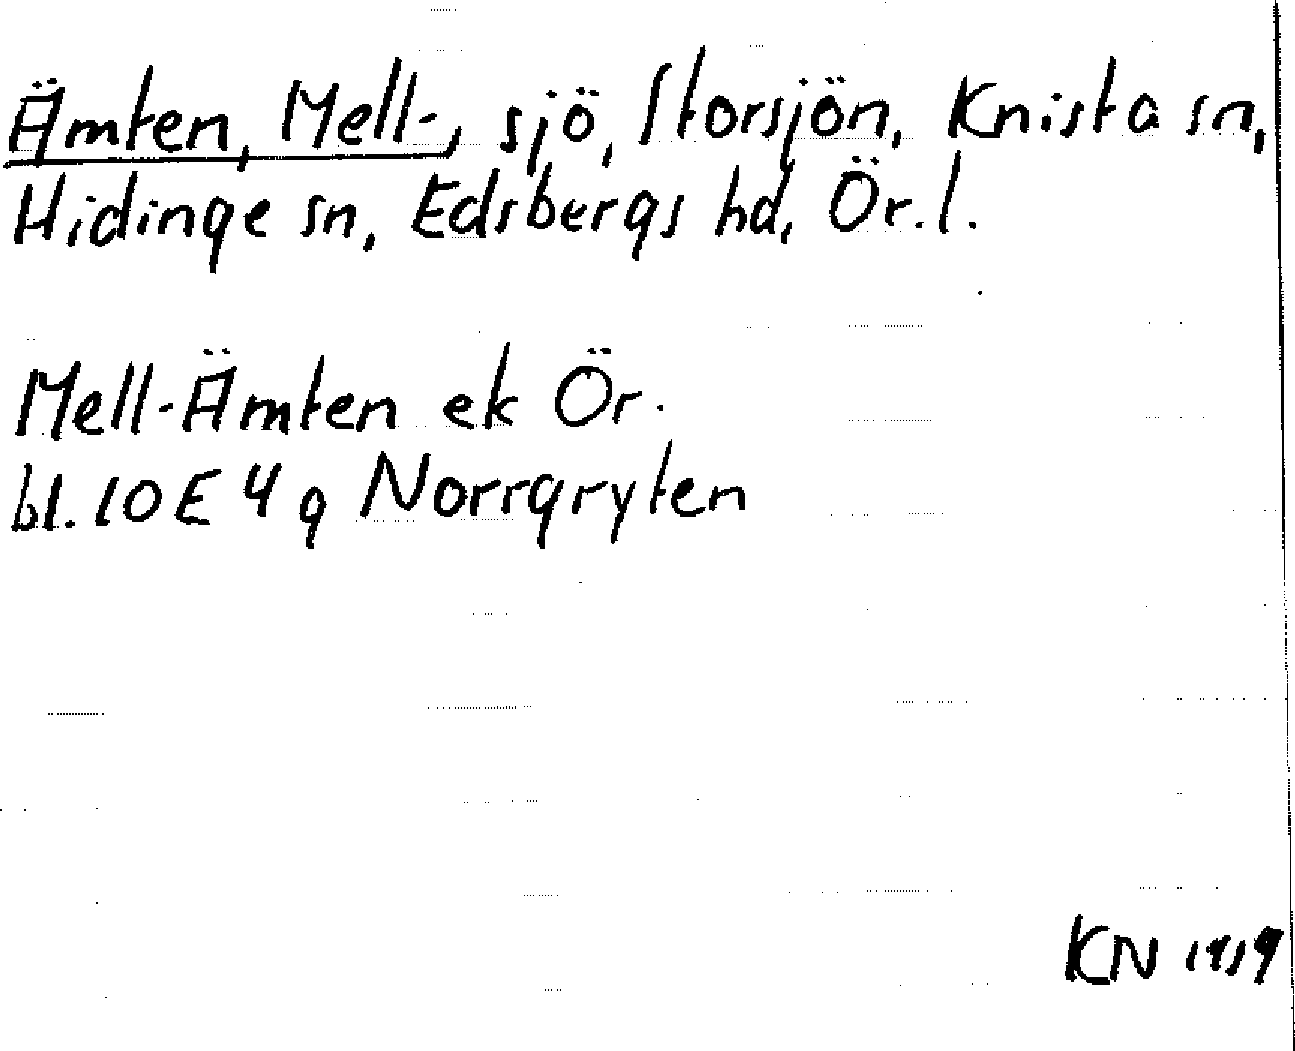 Ämten, Mell-, sjö, Storsjön, Knista sn,
Hidinge sn, Edsbergs hd, Ör.l.
Mell-Ämten ek Ör.
bl. 10 E 4 g Norrgryten
KN